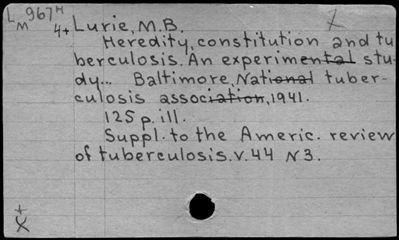 L 967H
M 4+ Lurie, M.B.
Heredity, constitution and tu
berculosis. An experimental stu-
dy... Baltimore, National tuber-
culosis association, 1941.
125 p. ill.
Suppl. to the Americ. review
of tuberculosis. v. 44 N3.
+
X